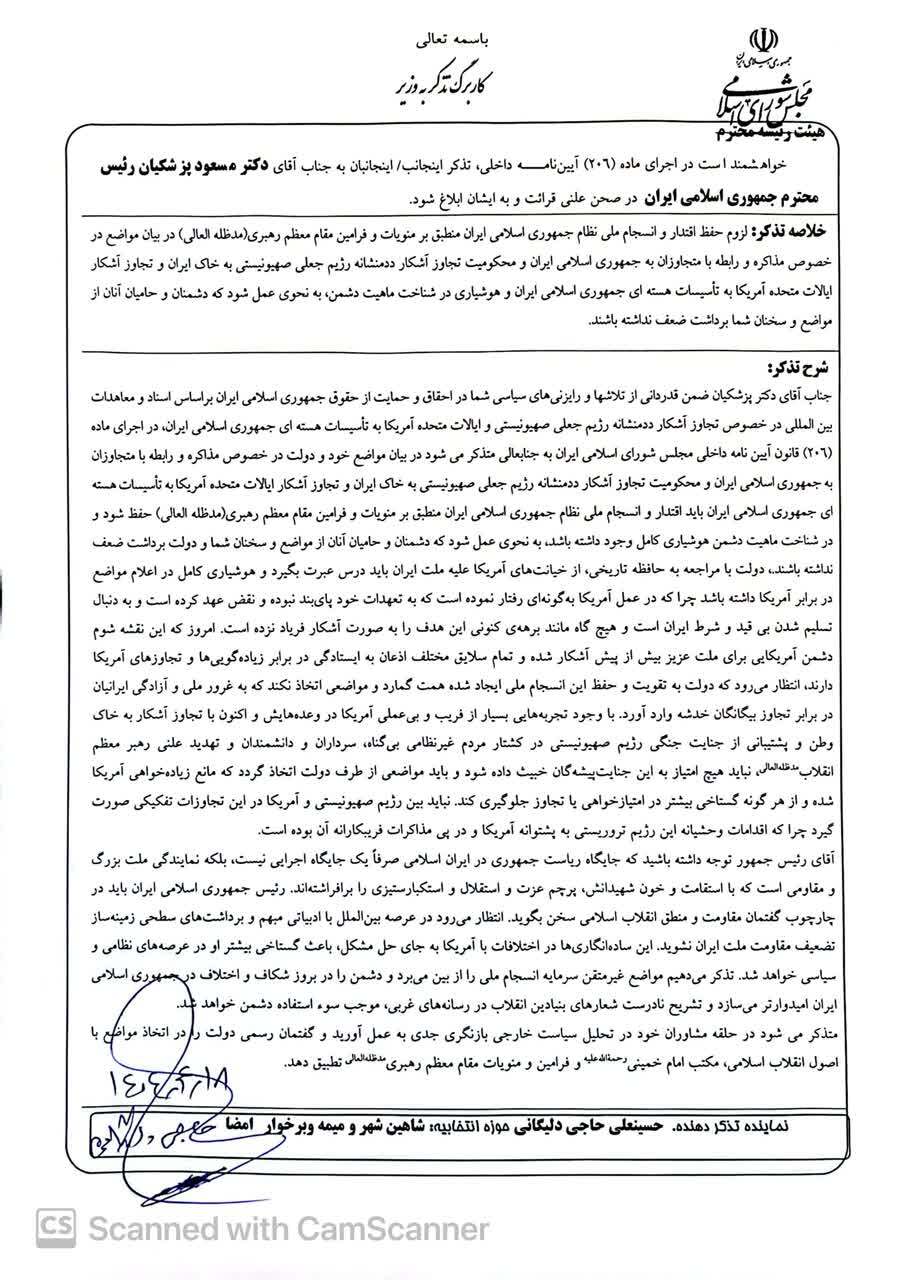 باسمه تعالی
کاربرگ تذکر به وزیر
جمهوری اسلامی ایران
مجلس شورای اسلامی
هیئت رئیسه محترم
خواهشمند است در اجرای ماده (۲۰۶) آیین‌نامـــه داخلی، تذکر اینجانب/ اینجانبان به جناب آقای دکتر مسعود پزشکیان رئیس
محترم جمهوری اسلامی ایران در صحن علنی قرائت و به ایشان ابلاغ شود.
خلاصه تذکر: لزوم حفظ اقتدار و انسجام ملی نظام جمهوری اسلامی ایران منطبق بر منویات و فرامین مقام معظم رهبری(مدظله العالی) در بیان مواضع در
خصوص مذاکره و رابطه با متجاوزان به جمهوری اسلامی ایران و محکومیت تجاوز آشکار ددمنشانه رژیم جعلی صهیونیستی به خاک ایران و تجاوز آشکار
ایالات متحده آمریکا به تأسیسات هسته ای جمهوری اسلامی ایران و هوشیاری در شناخت ماهیت دشمن، به نحوی عمل شود که دشمنان و حامیان آنان از
مواضع و سخنان شما برداشت ضعف نداشته باشند.
شرح تذکر:
جناب آقای دکتر پزشکیان ضمن قدردانی از تلاشها و رایزنی‌های سیاسی شما در احقاق و حمایت از حقوق جمهوری اسلامی ایران براساس اسناد و معاهدات
بین المللی در خصوص تجاوز آشکار ددمنشانه رژیم جعلی صهیونیستی و ایالات متحده آمریکا به تأسیسات هسته ای جمهوری اسلامی ایران، در اجرای ماده
(۲۰۶) قانون آیین نامه داخلی مجلس شورای اسلامی ایران به جنابعالی متذکر می شود در بیان مواضع خود و دولت در خصوص مذاکره و رابطه با متجاوزان
به جمهوری اسلامی ایران و محکومیت تجاوز آشکار ددمنشانه رژیم جعلی صهیونیستی به خاک ایران و تجاوز آشکار ایالات متحده آمریکا به تأسیسات هسته
ای جمهوری اسلامی ایران باید اقتدار و انسجام ملی نظام جمهوری اسلامی ایران منطبق بر منویات و فرامین مقام معظم رهبری(مدظله العالی) حفظ شود و
در شناخت ماهیت دشمن هوشیاری کامل وجود داشته باشد، به نحوی عمل شود که دشمنان و حامیان آنان از مواضع و سخنان شما و دولت برداشت ضعف
نداشته باشند.، دولت با مراجعه به حافظه تاریخی، از خیانت‌های آمریکا علیه ملت ایران باید درس عبرت بگیرد و هوشیاری کامل در اعلام مواضع
در برابر آمریکا داشته باشد چرا که در عمل آمریکا به‌گونه‌ای رفتار نموده است که به تعهدات خود پای‌بند نبوده و نقض عهد کرده است و به دنبال
تسلیم شدن بی قید و شرط ایران است و هیچ گاه مانند برهه‌ی کنونی این هدف را به صورت آشکار فریاد نزده است. امروز که این نقشه شوم
دشمن آمریکایی برای ملت عزیز بیش از پیش آشکار شده و تمام سلایق مختلف اذعان به ایستادگی در برابر زیاده‌گویی‌ها و تجاوزهای آمریکا
دارند، انتظار می‌رود که دولت به تقویت و حفظ این انسجام ملی ایجاد شده همت گمارد و مواضعی اتخاذ نکند که به غرور ملی و آزادگی ایرانیان
در برابر تجاوز بیگانگان خدشه وارد آورد. با وجود تجربه‌هایی بسیار از فریب و بی‌عملی آمریکا در وعده‌هایش و اکنون با تجاوز آشکار به خاک
وطن و پشتیبانی از جنایت جنگی رژیم صهیونیستی در کشتار مردم غیرنظامی بی‌گناه، سرداران و دانشمندان و تهدید علنی رهبر معظم
انقلاب مدظله‌العالی، نباید هیچ امتیاز به این جنایت‌پیشه‌گان خبیث داده شود و باید مواضعی از طرف دولت اتخاذ گردد که مانع زیاده‌خواهی آمریکا
شده و از هر گونه گستاخی بیشتر در امتیازخواهی یا تجاوز جلوگیری کند. نباید بین رژیم صهیونیستی و آمریکا در این تجاوزات تفکیکی صورت
گیرد چرا که اقدامات وحشیانه این رژیم تروریستی به پشتوانه آمریکا و در پی مذاکرات فریبکارانه آن بوده است.
آقای رئیس جمهور توجه داشته باشید که جایگاه ریاست جمهوری در ایران اسلامی صرفاً یک جایگاه اجرایی نیست، بلکه نمایندگی ملت بزرگ
و مقاومی است که با استقامت و خون شهیدانش، پرچم عزت و استقلال و استکبارستیزی را برافراشته‌اند. رئیس جمهوری اسلامی ایران باید در
چارچوب گفتمان مقاومت و منطق انقلاب اسلامی سخن بگوید. انتظار می‌رود در عرصه بین‌الملل با ادبیاتی مبهم و برداشت‌های سطحی زمینه‌ساز
تضعیف مقاومت ملت ایران نشوید. این ساده‌انگاری‌ها در اختلافات با آمریکا به جای حل مشکل، باعث گستاخی بیشتر او در عرصه‌های نظامی و
سیاسی خواهد شد. تذکر می‌دهیم مواضع غیرمتقن سرمایه انسجام ملی را از بین می‌برد و دشمن را در بروز شکاف و اختلاف در جمهوری اسلامی
ایران امیدوارتر می‌سازد و تشریح نادرست شعارهای بنیادین انقلاب در رسانه‌های غربی، موجب سوء استفاده دشمن خواهد شد.
متذکر می شود در حلقه مشاوران خود در تحلیل سیاست خارجی بازنگری جدی به عمل آورید و گفتمان رسمی دولت را در اتخاذ مواضع با
اصول انقلاب اسلامی، مکتب امام خمینی رحمة‌الله‌علیه و فرامین و منویات مقام معظم رهبری مدظله‌العالی تطبیق دهد.
۱۴۰۴/۴/۱۸
نماینده تذکر دهنده. حسینعلی حاجی دلیگانی حوزه انتخابیه: شاهین شهر و میمه وبرخوار امضا
CS Scanned with CamScanner